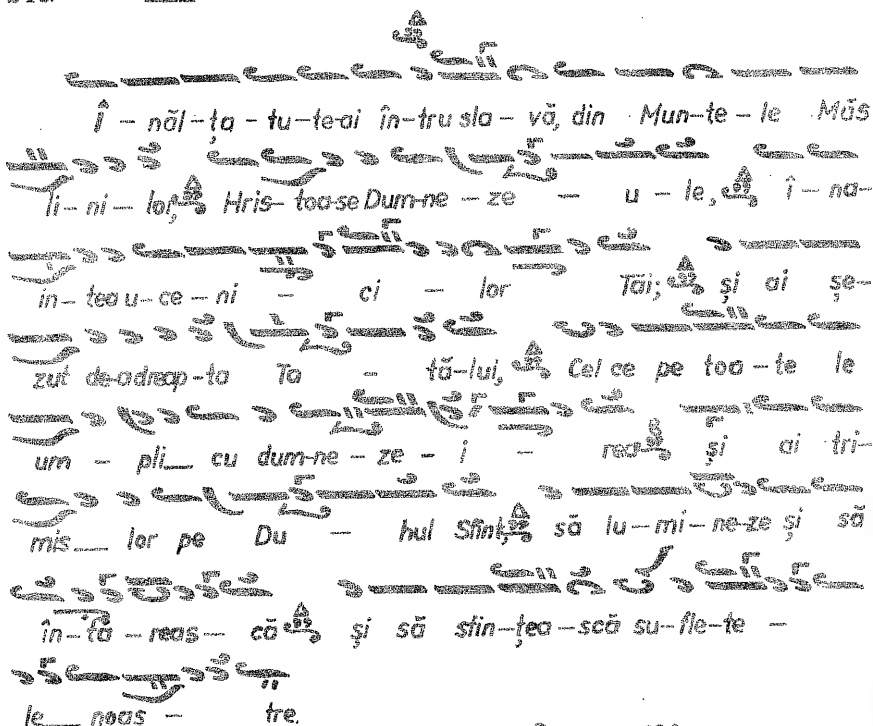 Î - năl - ța - tu - te-ai în - tru sla - vă, din Mun - te - le Măs
li - ni - lor, Hris - toa - se Dum - ne - ze - u - le, î - na -
in - tea u - ce - ni - ci - lor Tăi; și ai șe -
zut de-a dreap - ta Ta - tă - lui, Cel ce pe toa - te le
um - pli cu dum - ne - ze - i - rea și ai tri -
mis lor pe Du - hul Sfînt, să lu - mi - ne - ze și să
în - tă - reas - că și să sfin - țea - scă su - fle - te -
le noas - tre.